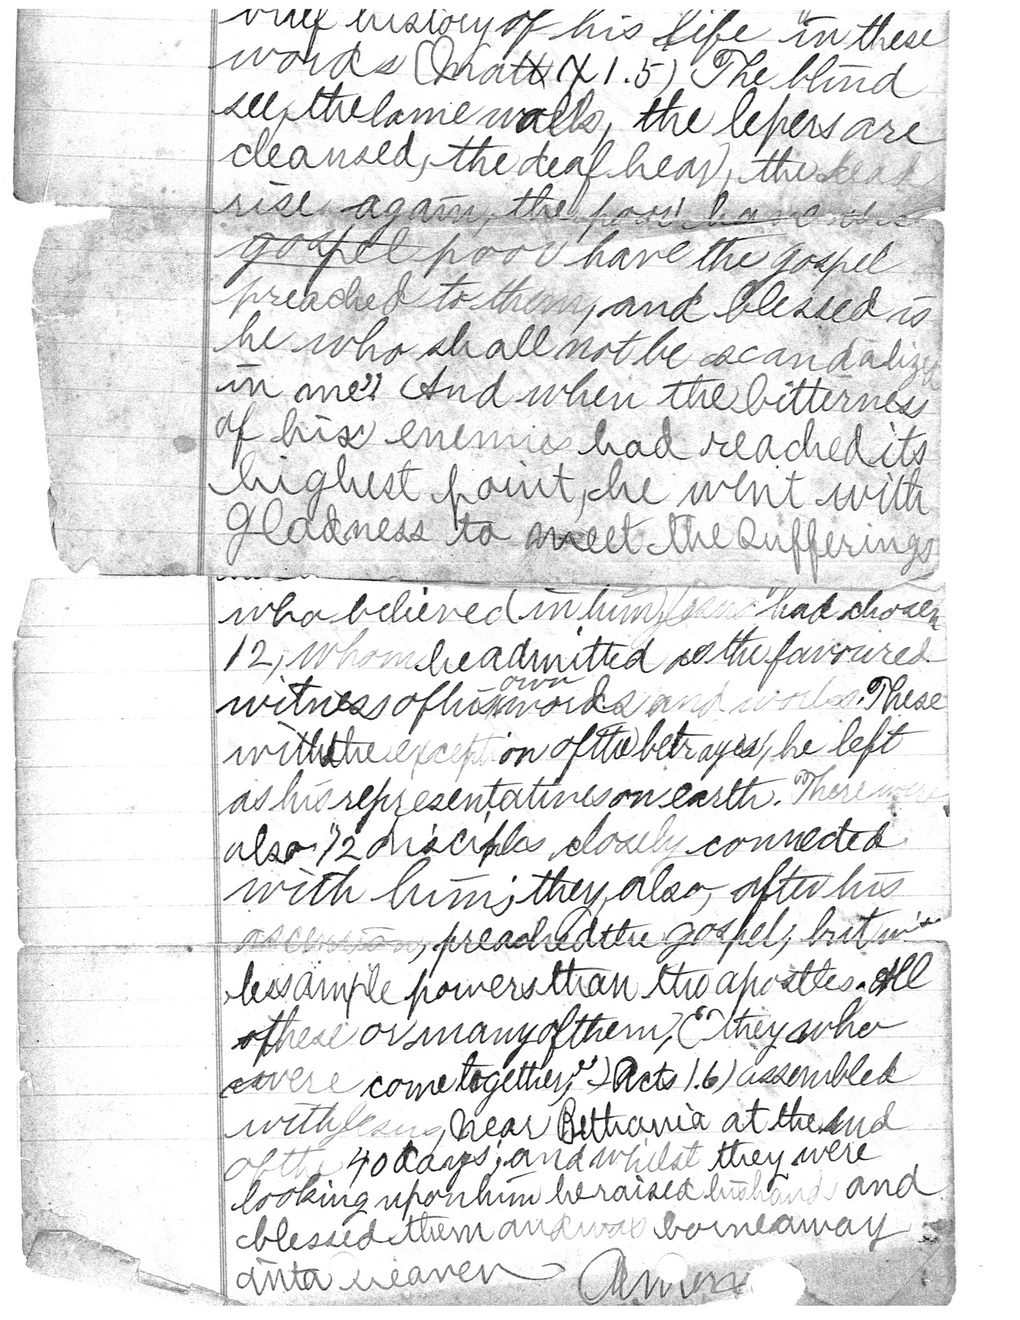 brief history of his life "in these
words (Matt X 1.5) The blind
see, the lame walk, the lepers are
cleansed, the deaf hear, the dead
rise again, the poor have the
gospel poor have the gospel
preached to them, and blessed is
he who shall not be scandalized
in me" And when the bitterness
of his enemies had reached its
highest point, he went with
gladness to meet the sufferings
who believed (in him) Jesus had chosen
12, whom he admitted as the favoured
witness of his own words and works. These
with the exception of the betrayer, he left
as his representatives on earth. There were
also 72 disciples closely connected
with him; they also, after his
ascension, preached the gospel; but with
less ample powers than the apostles. All
of these or many of them, ("they who
were come together,") Acts 1.6) assembled
with Jesus, near Bethania at the end
of the 40 days; and whilst they were
looking upon him he raised his hands and
blessed them and was borne away
into heaven Amen